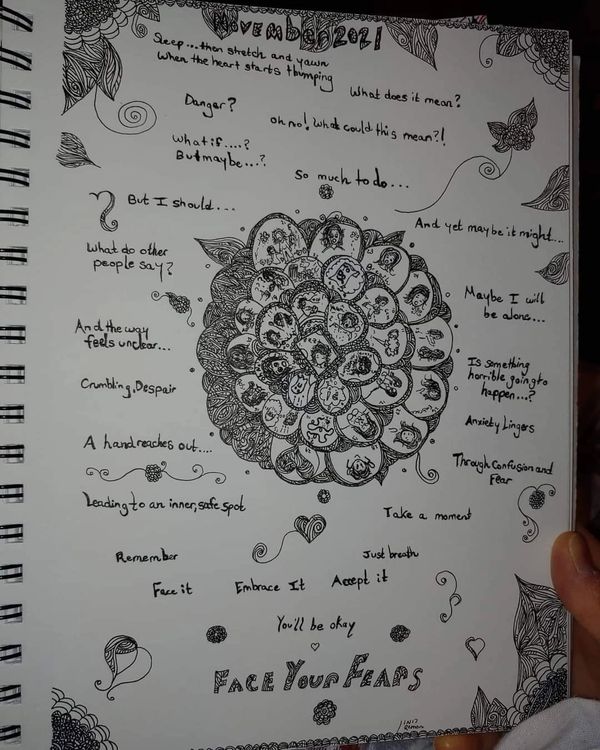 November 2021
Sleep...then stretch and yawn
When the heart starts thumping
What does it mean?
Danger?
Oh no! What could this mean?!
What if....?
But maybe...?
So much to do...
But I should....
And yet maybe it might...
What do other
people say?
Maybe I will
be alone...
And the way
feels unclear...
Is something
horrible going to
happen...?
Crumbling, Despair
Anxiety Lingers
A hand reaches out....
Through Confusion and
Fear
Leading to an inner, safe spot
Take a moment
Remember
Just breath
Face it
Embrace It
Accept it
You'll be okay
FACE YOUR FEARS